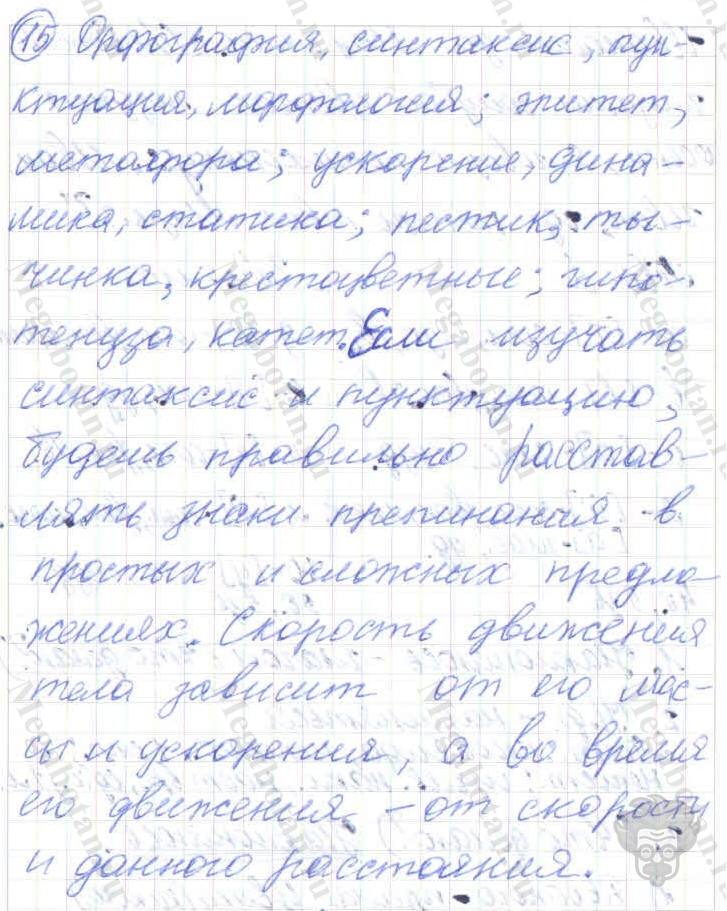 15 Орфография, синтаксис, пун-
ктуация, морфология; эпитет,
метафора; ускорение, дина-
мика, статика; пестик, ты-
чинка, крестоцветные; гипо-
тенуза, катет. Если изучать
синтаксис и пунктуацию,
будешь правильно расстав-
лять знаки препинания в
простых и сложных предло-
жениях. Скорость движения
тела зависит от его мас-
сы и ускорения, а во время
его движения - от скорости
и данного расстояния.
Megabotan.ru